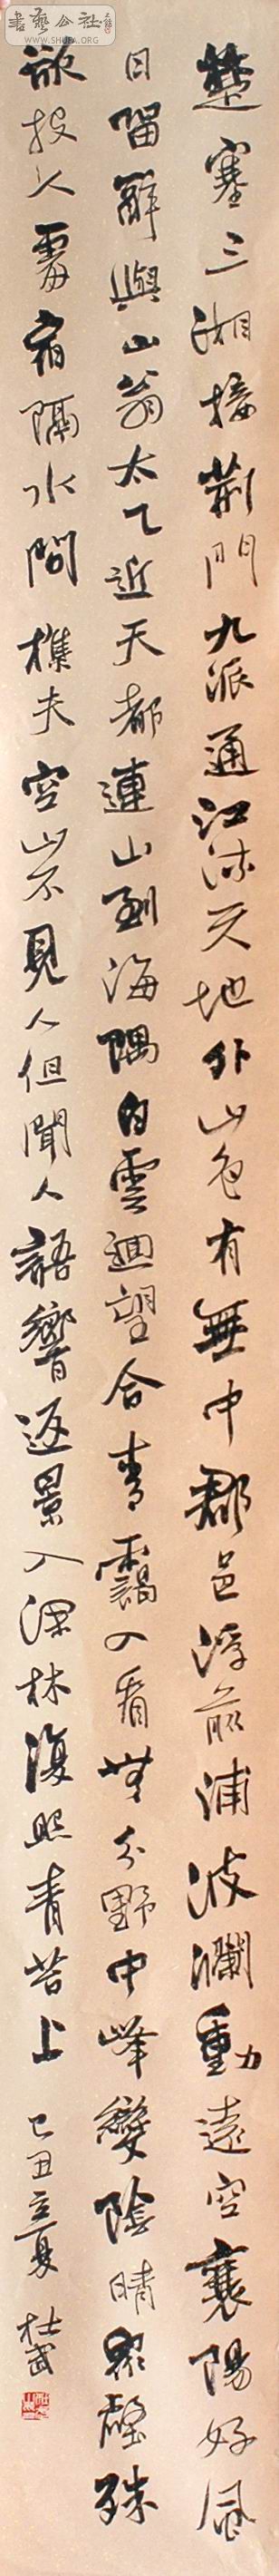 書藝公社
WWW.SHUFA.ORG
楚塞三湘接荆門九派通江流天地外山色有無中郡邑浮前浦波瀾動遠空襄陽好風
日留醉與山翁太乙近天都連山到海隅白雲迴望合青靄入看無分野中峰變陰晴衆壑殊
欲投人處宿隔水問樵夫空山不見人但聞人語響返景入深林復照青苔上己丑立夏杜武